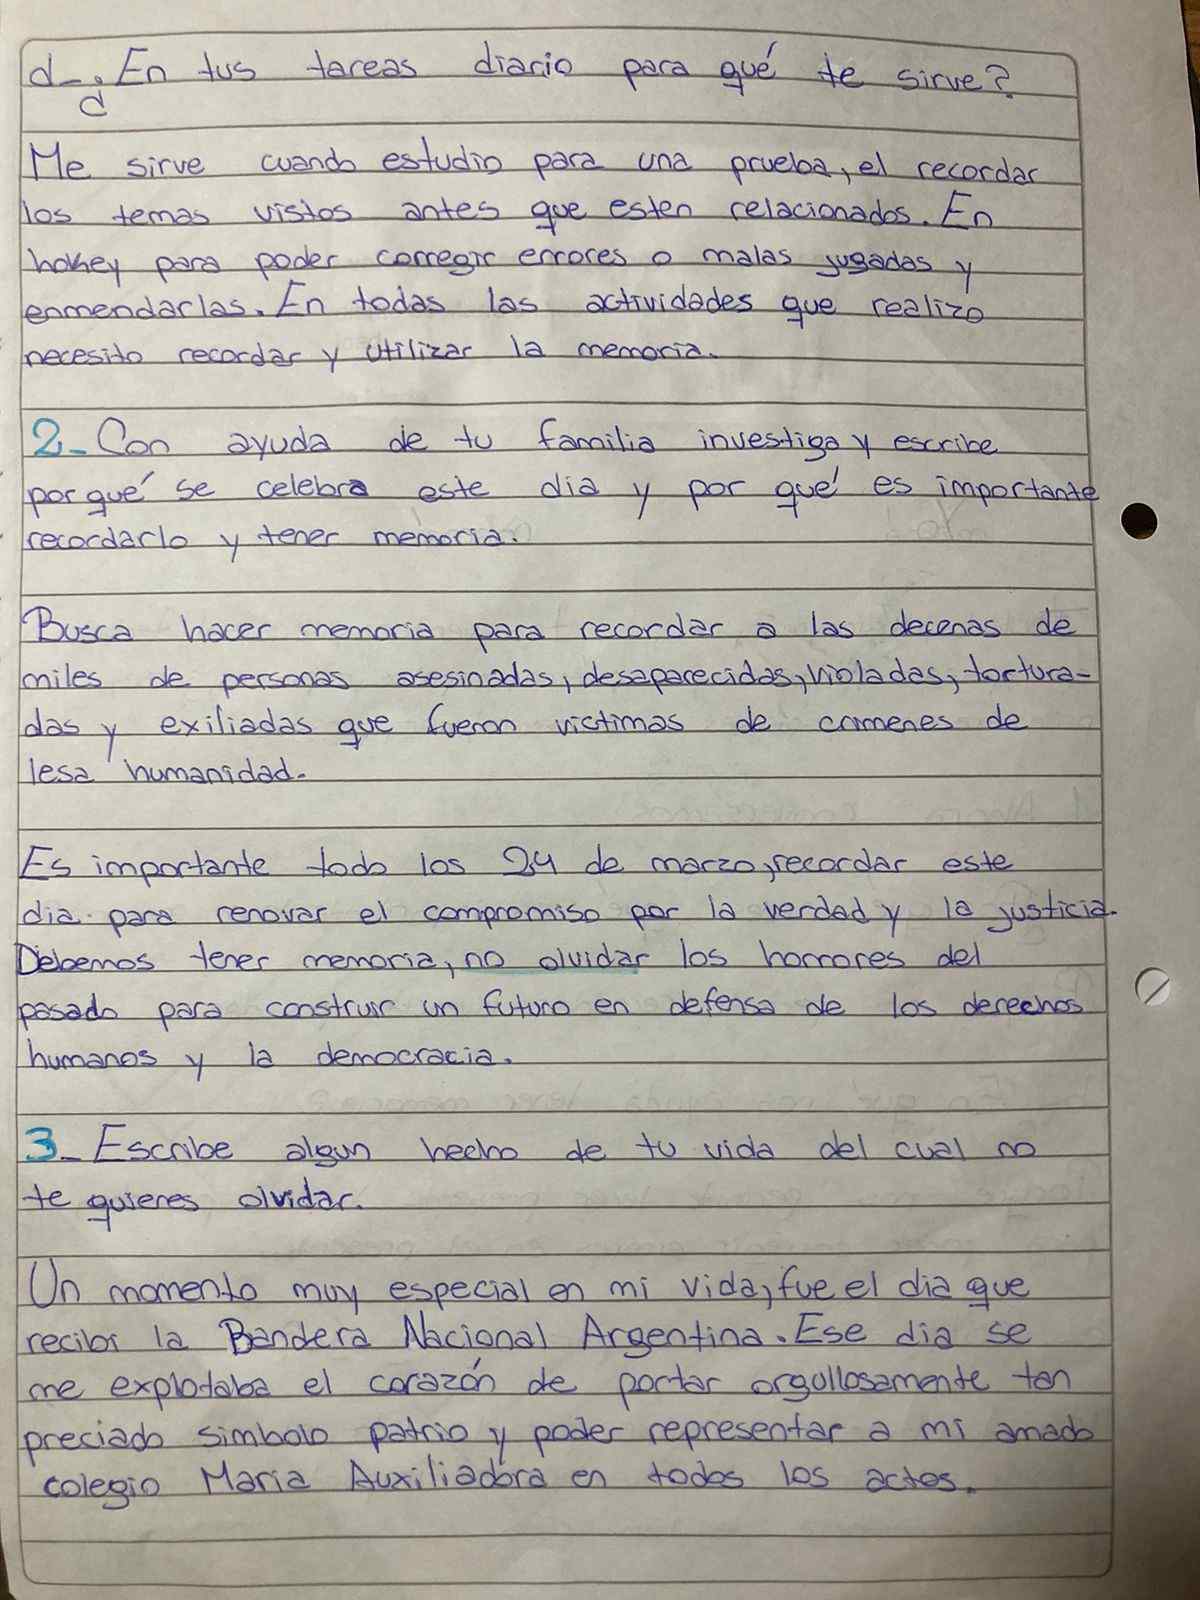 d-¿En tus tareas diario para qué te sirve?
Me sirve cuando estudio para una prueba, el recordar
los temas vistos antes que esten relacionados. En
hokey para poder corregir errores o malas jugadas y
enmendarlas. En todas las actividades que realizo
necesito recordar y utilizar la memoria.
2- Con ayuda de tu familia investiga y escribe
por qué se celebra este dia y por qué es importante
recordarlo y tener memoria.
Busca hacer memoria para recordar a las decenas de
miles de personas asesinadas, desaparecidas, violadas, tortura-
das y exiliadas que fueron victimas de crimenes de
lesa humanidad.
Es importante todo los 24 de marzo, recordar este
dia para renovar el compromiso por la verdad y la justicia.
Debemos tener memoria, no olvidar los horrores del
pasado para construir un futuro en defensa de los derechos
humanos y la democracia.
3- Escribe algun hecho de tu vida del cual no
te quieres olvidar.
Un momento muy especial en mi vida, fue el dia que
recibi la Bandera Nacional Argentina. Ese dia se
me explotaba el corazón de portar orgullosamente tan
preciado simbolo patrio y poder representar a mi amado
colegio Maria Auxiliadora en todos los actos.